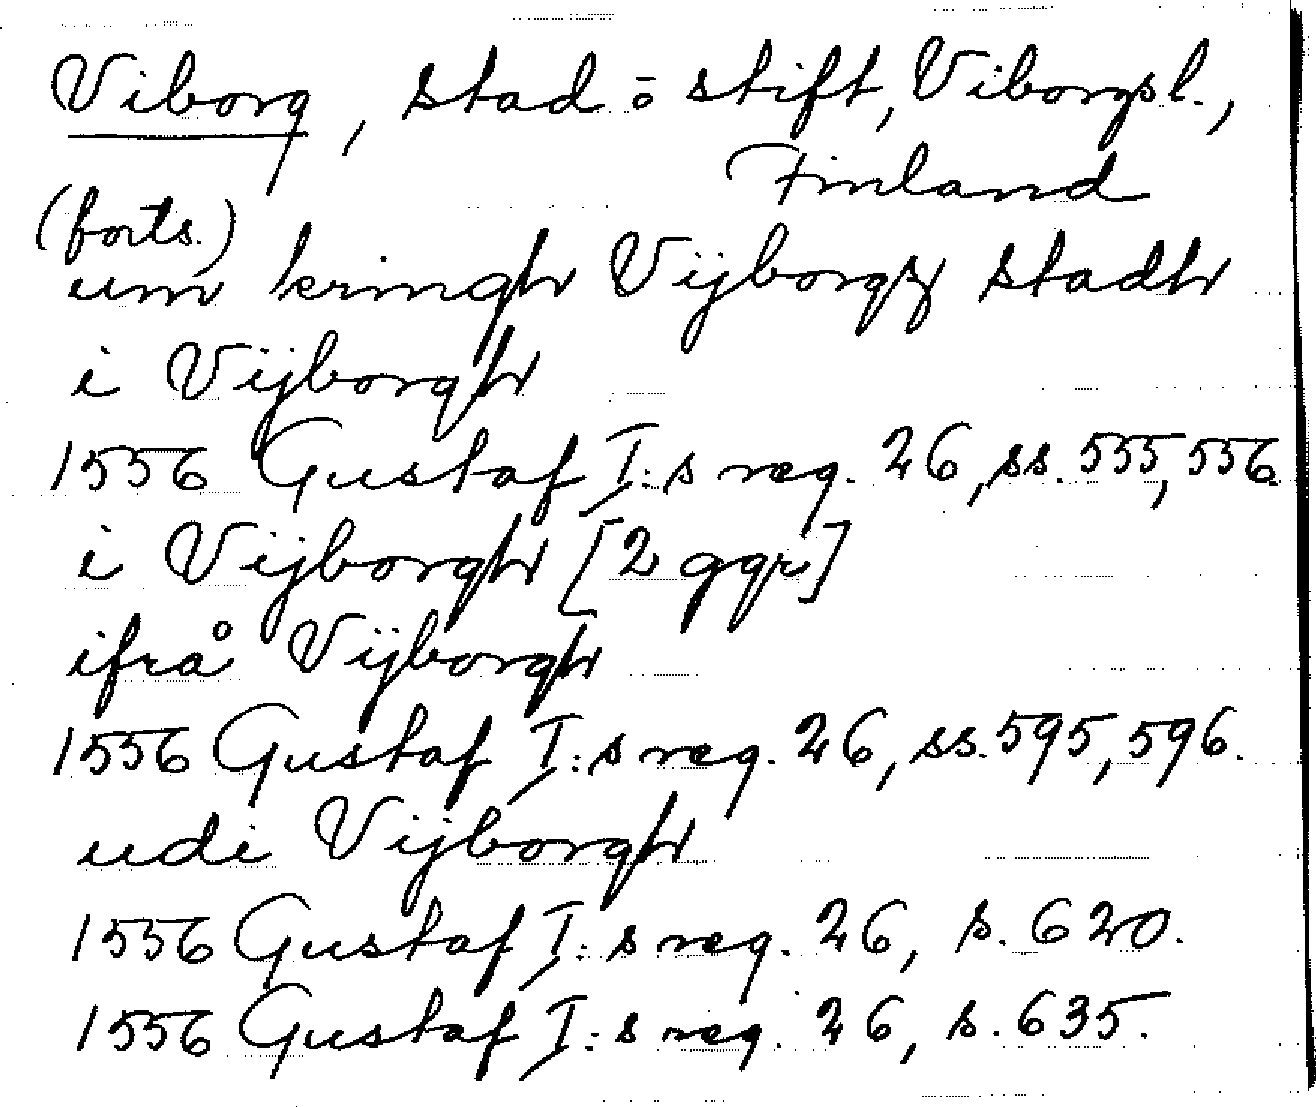 Viborg, stad o stift, Viborgsl.,
Finland
(forts.)
um kringh Vijborgz stadh
i Vijborgh
1556 Gustaf I:s reg. 26, ss. 555, 556.
i Vijborgh [2 ggr]
ifrå Vijborgh
1556 Gustaf I:s reg. 26, ss. 595, 596.
udi Vijborgh
1556 Gustaf I:s reg. 26, s. 620.
1556 Gustaf I:s reg. 26, s. 635.